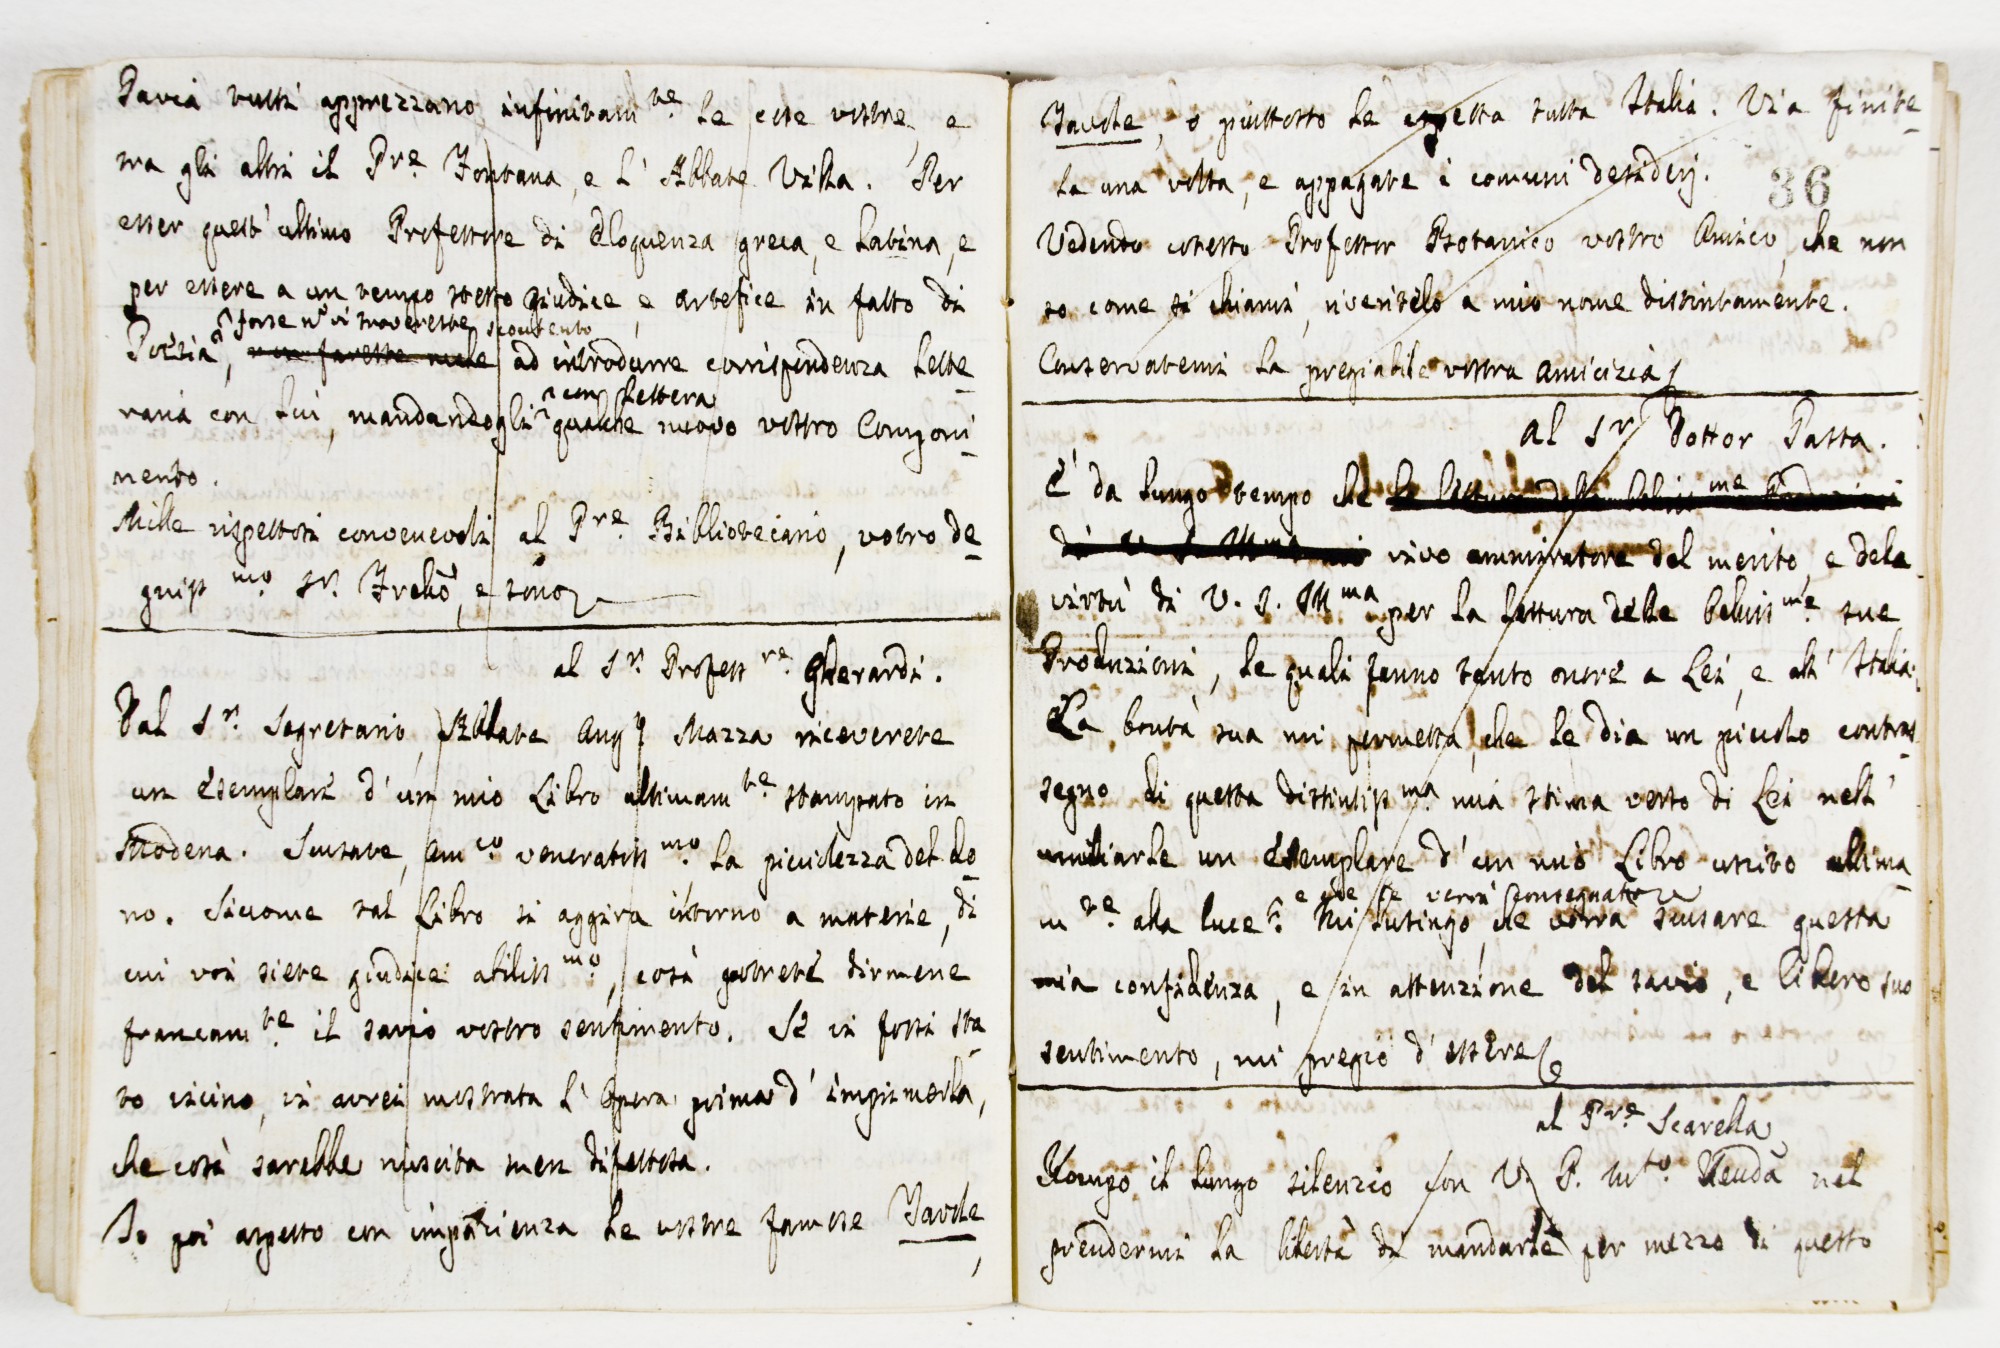 Pavia tutti apprezzano infinitam.te le cose vostre, e
tra gli altri il P.re Fontana, e l' Abbate Villa. Per
esser quest' ultimo Professore di Eloquenza greca, e latina, e
per essere a un tempo stesso giudice, e artefice in fatto di
forse n.o vi trovereste scontento
Poesia, non fareste male ad introdurre corrispondenza lette-
con lettera
raria con lui, mandandogli qualche nuovo vostro Componi-
mento.
Mille rispettosi convenevoli al P.re Bibliotecario, vostro de-
gniss.mo Sr. e sono
al Sr. Profess.re Gherardi.
Dal Sr. Segretario, Abbate Aug. Mazza riceverete
un Esemplare d' un mio Libro ultimam.te stampato in
Modena. Scusate, Am.co veneratiss.mo la picciolezza del do-
no. Siccome tal Libro si aggira intorno a materie, di
cui voi siete giudice abiliss.mo, così potrete dirmene
francam.te il savio vostro sentimento. Se vi fossi sta-
to vicino, vi avrei mostrata l' Opera prima d' imprimerla,
che così sarebbe riuscita men difettosa.
Io poi aspetto con impazienza le vostre famose Tavole
Tavole, o piuttosto le aspetta tutta Italia. Via finite-
la una volta, e appagate i comuni desiderj.
36
Vedendo cotesto Professor Botanico vostro Amico, che non
so come si chiami, riveritelo a mio nome distintamente.
Conservatemi la pregiabile vostra amicizia
al Sr. Dottor Pasta.
È da lungo tempo che la lettura delle belliss.me Produzioni
di V. S. Ill.ma vivo ammiratore del merito, e della
virtù di V. S. Ill.ma per la lettura delle belliss.me sue
Produzioni, le quali fanno tanto onore a Lei, e all' Italia.
La bontà sua mi permetta, che le dia un piccolo contras-
segno di questa distintiss.ma mia stima verso di Lei nell'
umiliarle un Esemplare d' un mio Libro uscito ultima-
e che le verrà consegnato
m.te alla luce. Mi lusingo, che vorrà scusare questa
mia confidenza, e in attenzione del savio, e libero suo
sentimento, mi pregio d' essere
al P.re Scarella
Rompo il lungo silenzio con V. P. M.to Renda nel
prendermi la libertà di mandarle per mezzo di questo